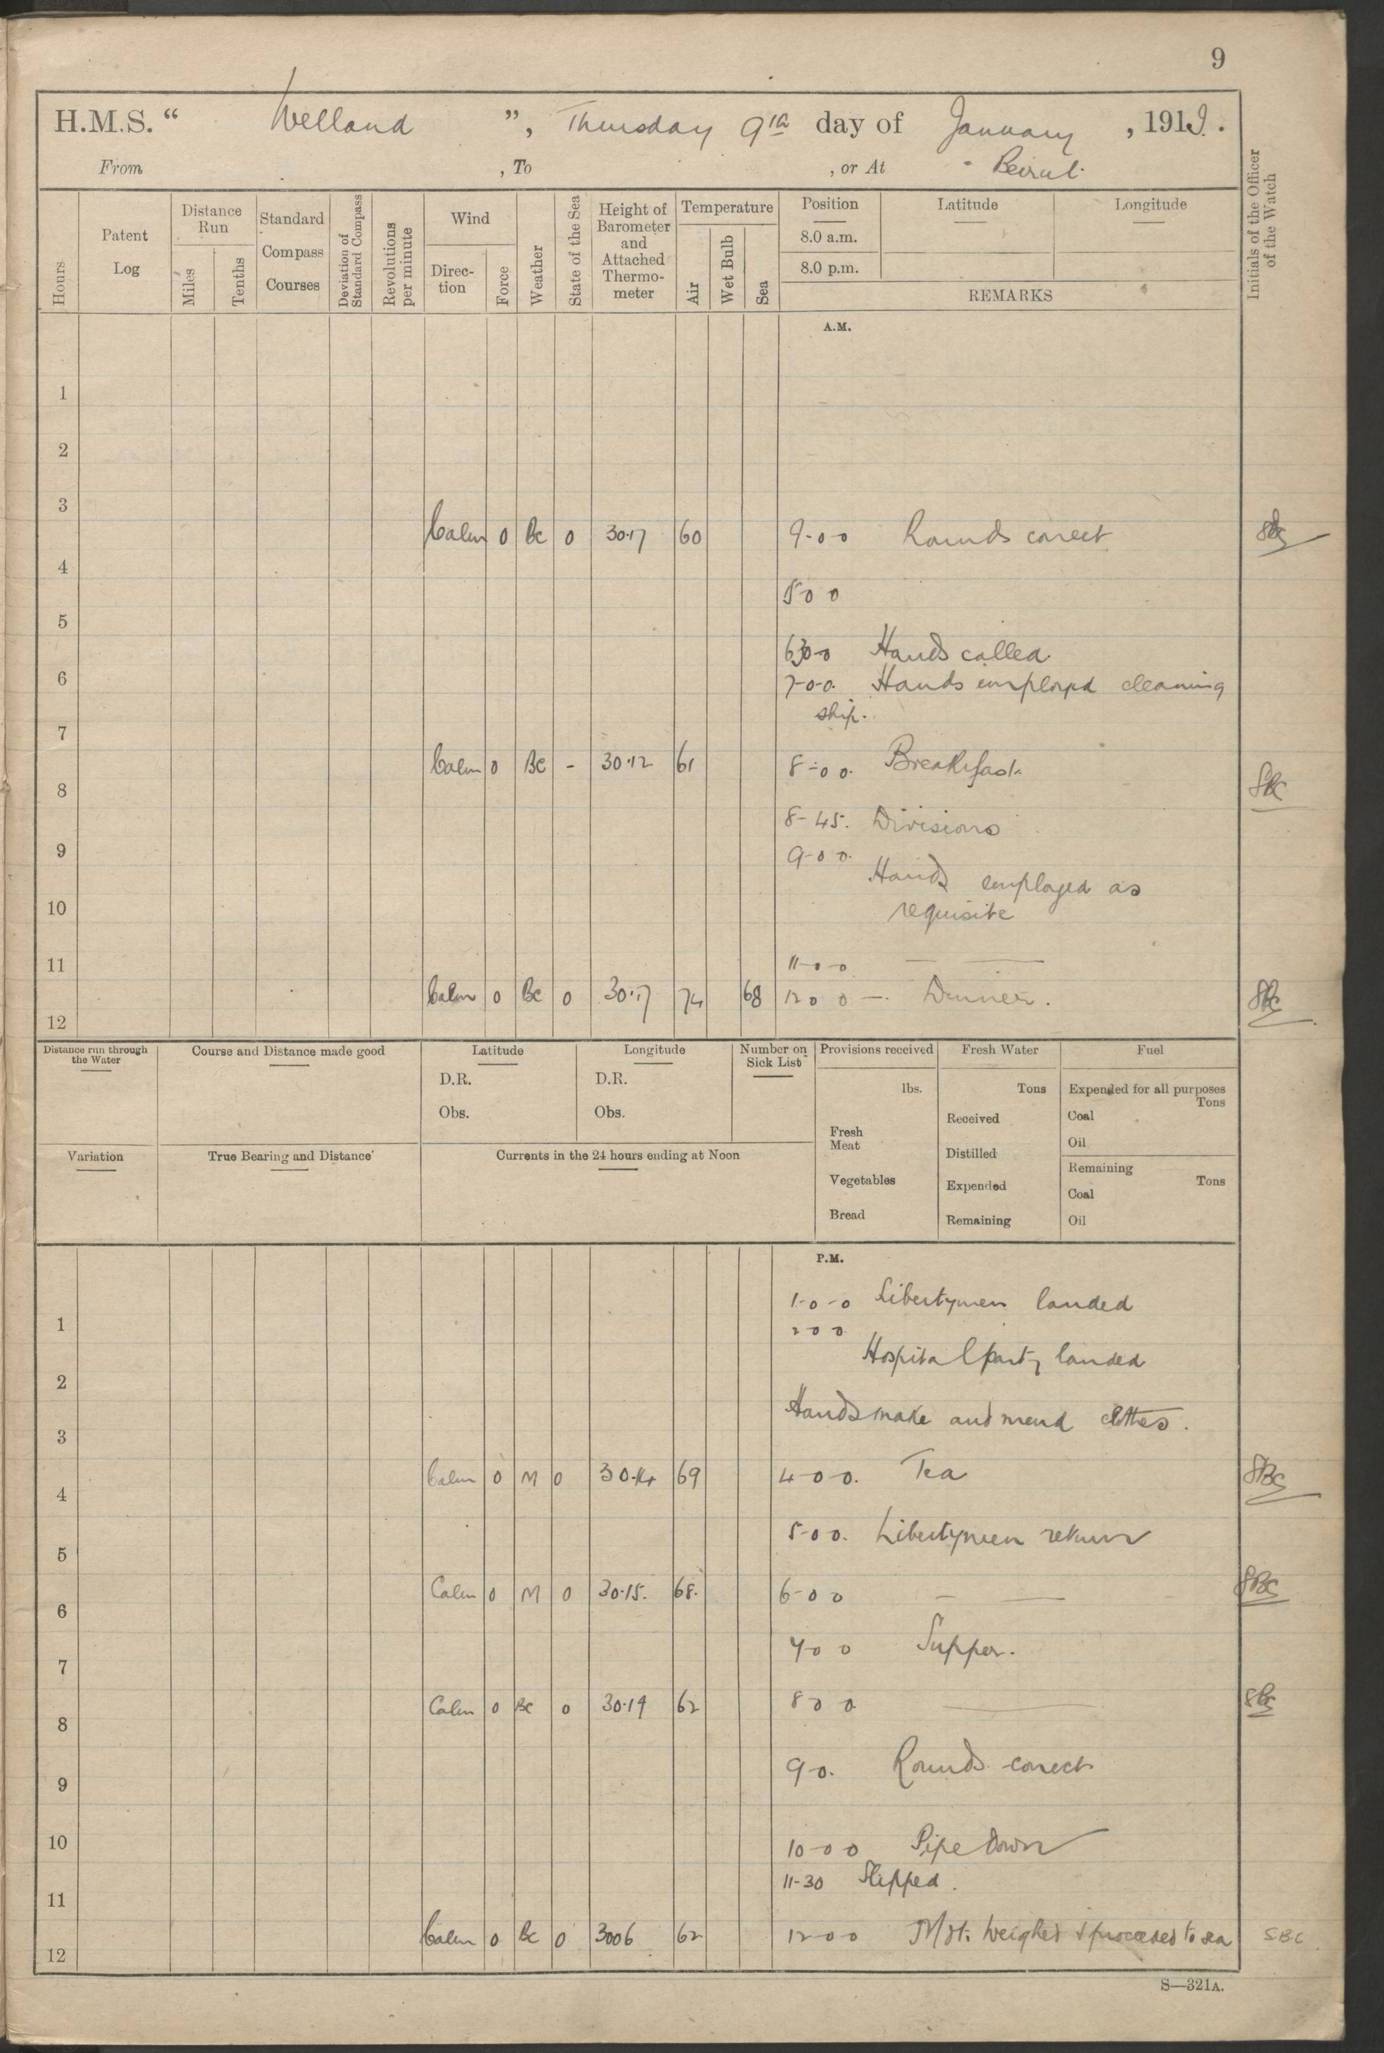 9
H.M.S. “ Welland ”, Thursday 9th day of January , 1919.
From , To , or At Beirut.
Hours
Patent Log
Distance Run
Miles
Tenths
Standard Compass Courses
Deviation of Standard Compass
Revolutions per minute
Wind
Direction
Force
Weather
State of the Sea
Height of Barometer and Attached Thermometer
Temperature
Air
Wet Bulb
Sea
Position
8.0 a.m.
8.0 p.m.
Latitude
Longitude
REMARKS
Initials of the Officer of the Watch
A.M.
1
2
3
Calm 0 Bc 0 30.17 60 9-0-0 Rounds corect
4
5 0 0
5
630-0 Hands called.
6
7-0-0. Hands employed cleaning
ship.
7
Calm 0 BC - 30.12 61 8-00. Breakfast. SBC
8
8-45. Divisions
9
9-0 0.
Hands employed as
10
requisite
11
11-0-0
Calm 0 Bc 0 30.17 74 68 12 0 0 —. Dinner. SBC
12
Distance run through the Water
Course and Distance made good
Latitude
D.R.
Obs.
Longitude
D.R.
Obs.
Number on Sick List
Provisions received
lbs.
Fresh Meat
Vegetables
Bread
Fresh Water
Tons
Received
Distilled
Expended
Remaining
Fuel
Expended for all purposes
Tons
Coal
Oil
Remaining
Tons
Coal
Oil
Variation
True Bearing and Distance
Currents in the 24 hours ending at Noon
P.M.
1-0-0 Libertymen landed
1
2 0 0
Hospital party landed
2
Hands make and mend clothes.
3
Calm 0 M 0 30.14 69 4-0 0. Tea SBC
4
5-0 0. Libertymen return
5
Calm 0 M 0 30.15. 68. 6-0 0 SBC
6
7 0 0 Supper.
7
Calm 0 BC 0 30.19 62 8 0 0 SBC
8
9 0. Rounds corect
9
10 10-0 0 Pipe down
11-30 Slipped.
11
Calm 0 Bc 0 3006 62 12-0 0 weighed & proceeded to sea SBC
12
S—321A.